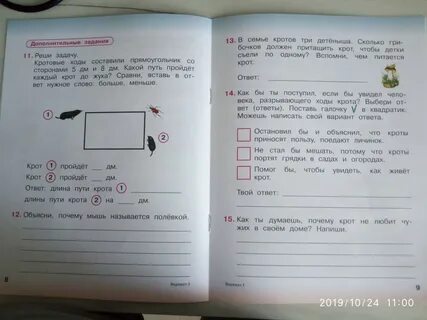 Дополнительные задания
11. Реши задачу.
Кротовые ходы составили прямоугольник со
сторонами 5 дм и 8 дм. Какой путь пройдёт
каждый крот до жука? Сравни, вставь в от-
вет нужное слово: больше, меньше.
1
2
Крот 1 пройдёт ___ дм.
Крот 2 пройдёт ___ дм.
Ответ: длина пути крота 1 ______
длины пути крота 2 на ___ дм.
12. Объясни, почему мышь называется полёвкой.
8
Вариант 1
13. В семье кротов три детёныша. Сколько гри-
бочков должен притащить крот, чтобы детки
съели по одному? Вспомни, чем питается
крот.
Ответ:
14. Как бы ты поступил, если бы увидел чело-
века, разрывающего ходы крота? Выбери от-
вет (ответы). Поставь галочку V в квадратик.
Можешь написать свой вариант ответа.
Остановил бы и объяснил, что кроты
приносят пользу, поедают личинок.
Не стал бы мешать, потому что кроты
портят грядки в садах и огородах.
Помог бы, чтобы увидеть, как живёт
крот.
Твой ответ:
15. Как ты думаешь, почему крот не любит чу-
жих в своём доме? Напиши.
Вариант 1
9
2019/10/24 11:00